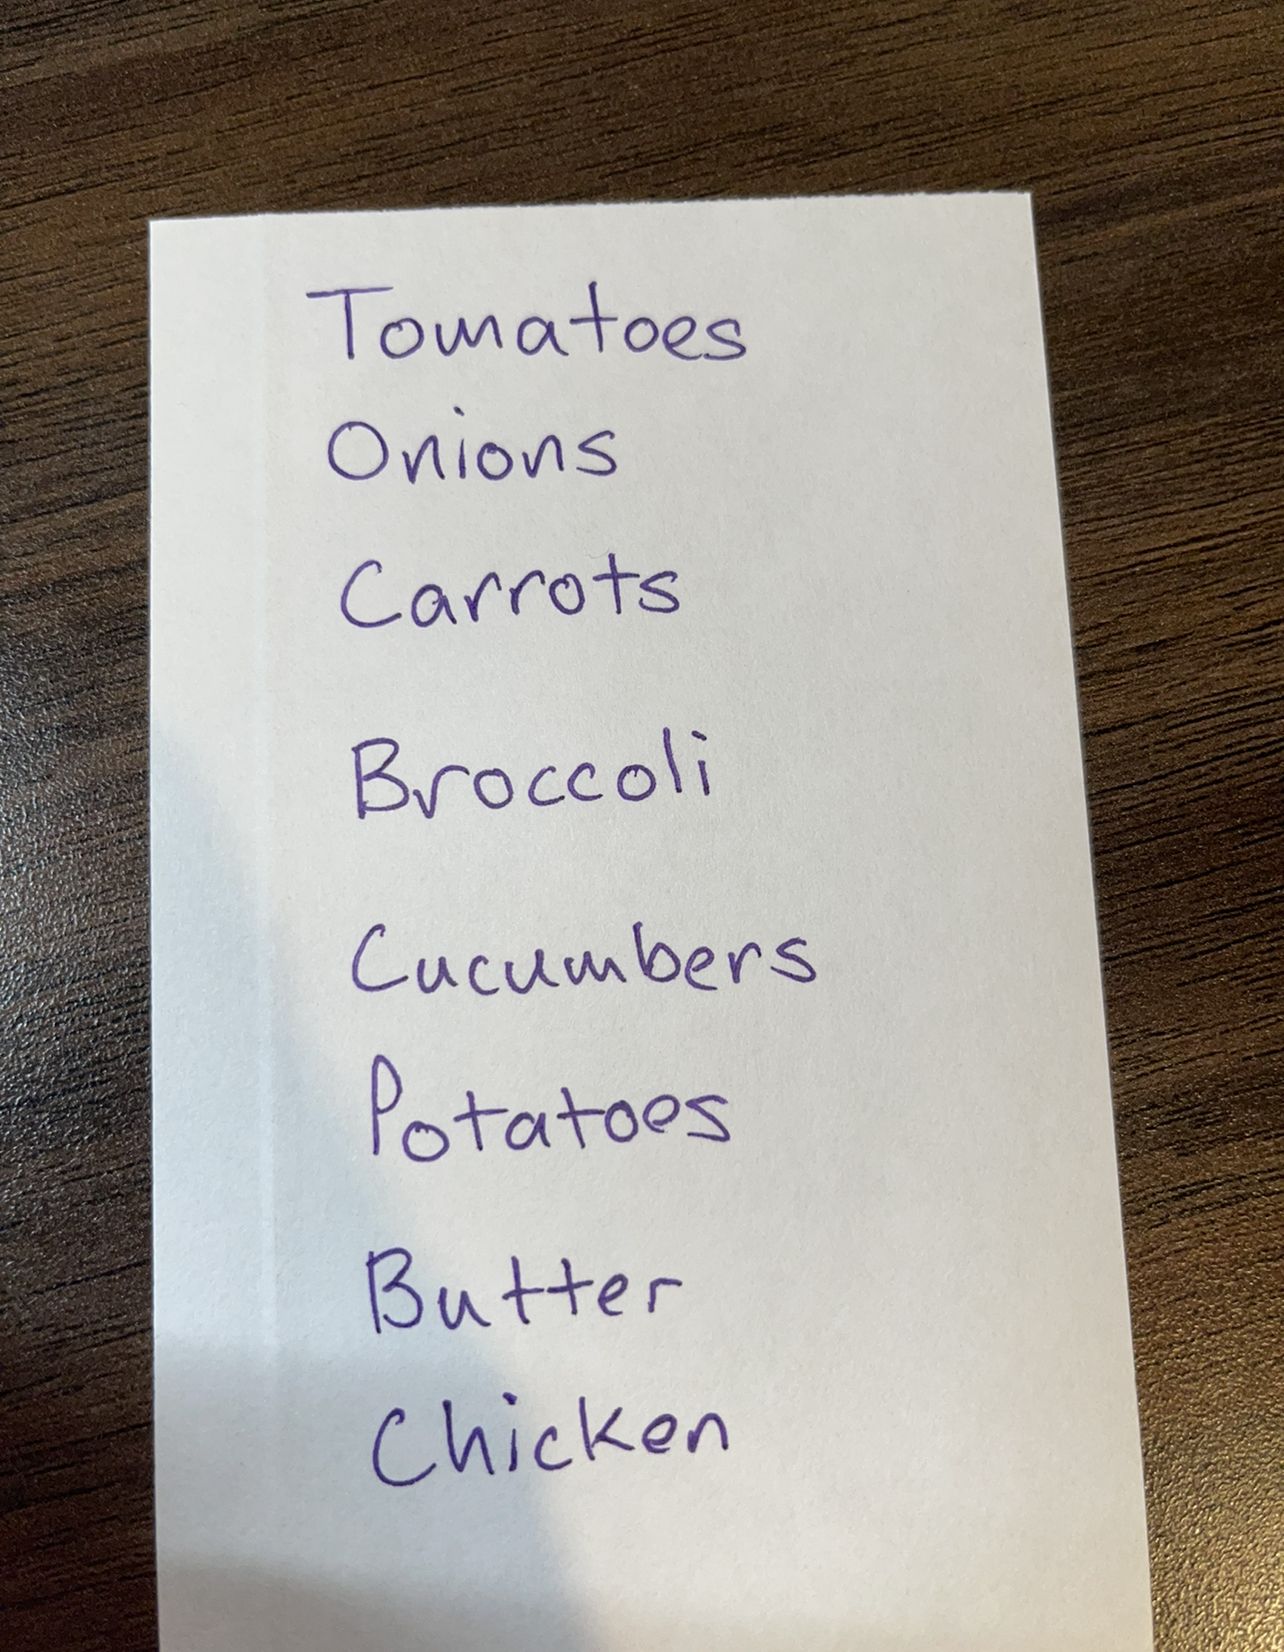 Tomatoes
Onions
Carrots
Broccoli
Cucumbers
Potatoes
Butter
Chicken